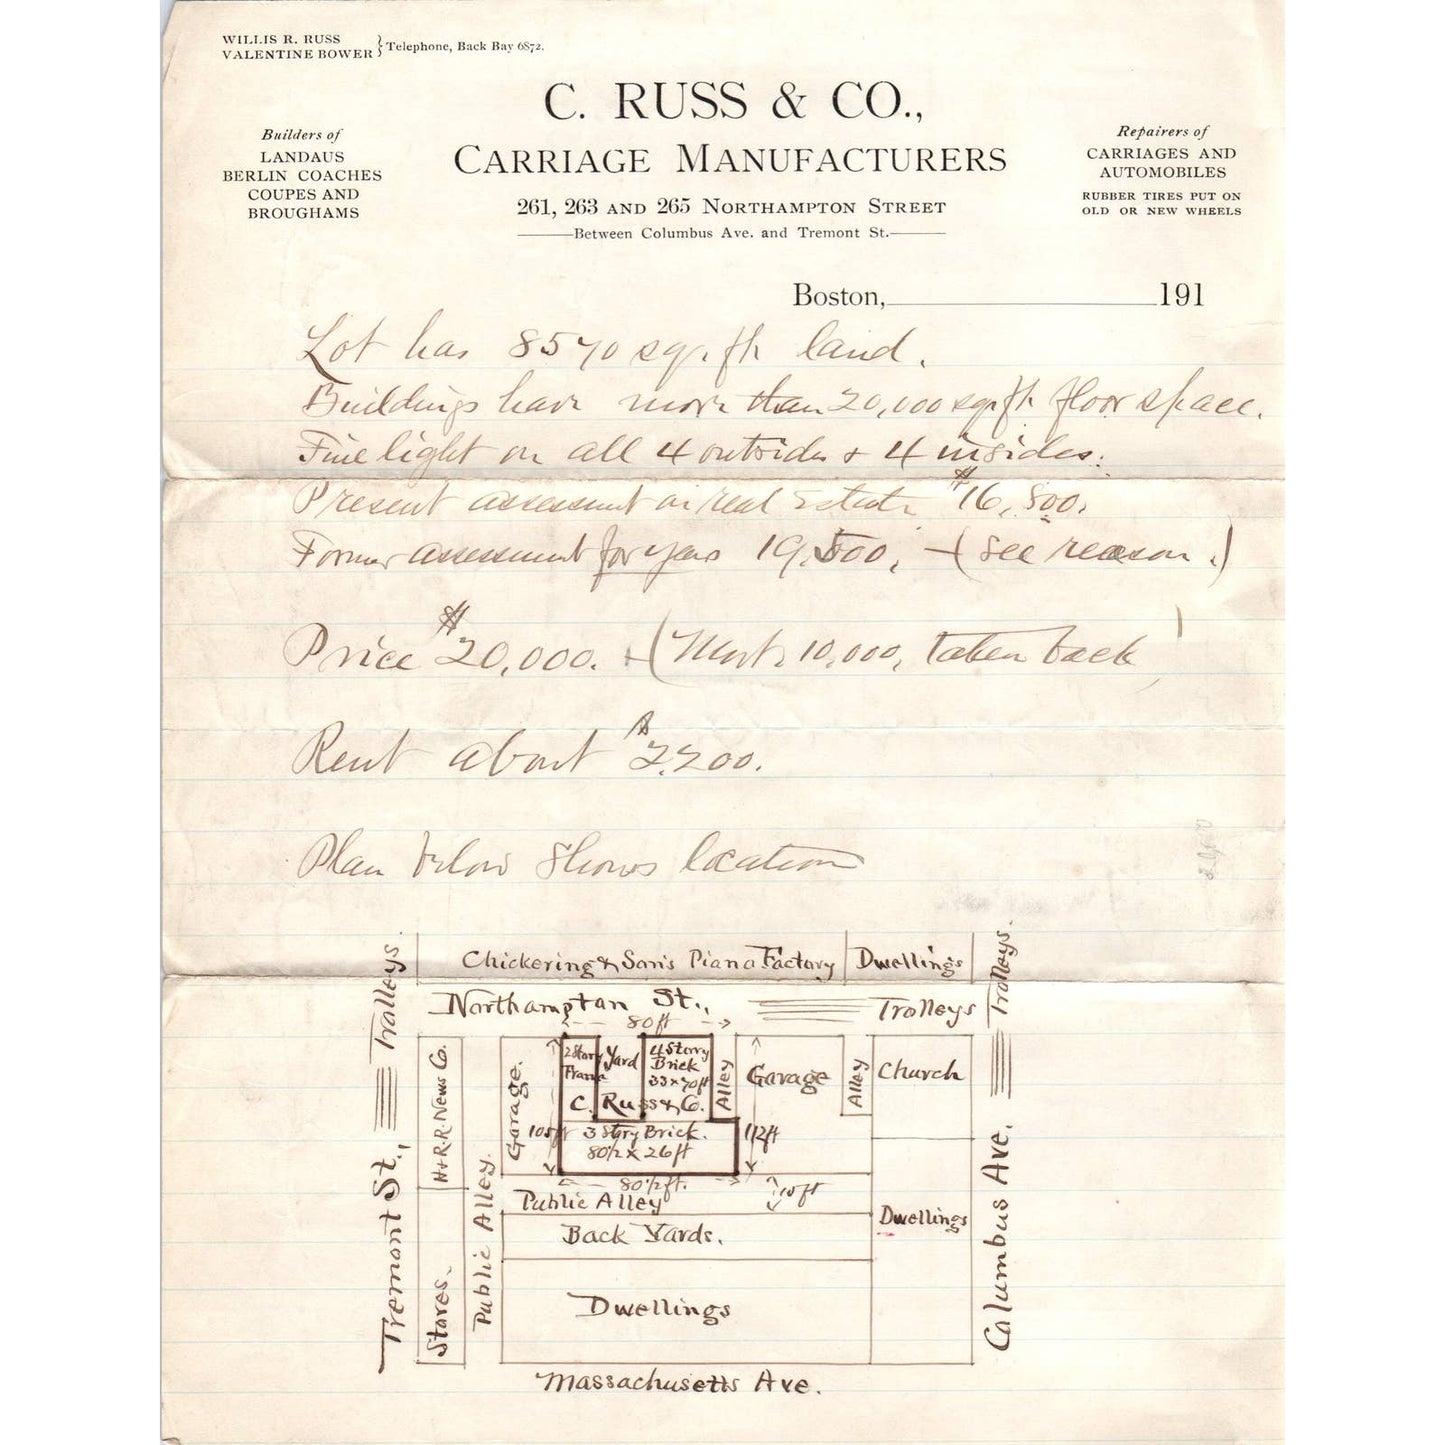 WILLIS R. RUSS
VALENTINE BOWER } Telephone, Back Bay 6872.
C. RUSS & CO.,
CARRIAGE MANUFACTURERS
261, 263 AND 265 NORTHAMPTON STREET
Between Columbus Ave. and Tremont St.
Builders of
LANDAUS
BERLIN COACHES
COUPES AND
BROUGHAMS
Repairers of
CARRIAGES AND
AUTOMOBILES
RUBBER TIRES PUT ON
OLD OR NEW WHEELS
Boston, 191
Lot has 8570 sq. ft land.
Buildings have more than 20,000 sq ft floor space.
Fine light on all 4 outsides + 4 insides.
Present assessment on real Estate $16,500.
Former assessment for years 19,500, - (see reason.)
Price $20,000. - (Mort. 10,000, taken back)
Rent about $2200.
Plan below shows location
Chickering & Son's Piano Factory
Dwellings
Trolleys.
Trolleys.
Northampton St.,
Trolleys
80 ft
2 Story
Frame
Yard
4 Story
Brick
33 x 70 ft
C. Russ & Co.
Alley
Garage
Alley
Church
Garage.
H & R.R. News Co.
105 ft
3 Story Brick.
80 1/2 x 26 ft
112 ft
80 1/2 ft.
Public Alley
10 ft
Tremont St.,
Stores.
Public Alley.
Back Yards.
Dwellings
Dwellings
Columbus Ave.
Massachusetts Ave.